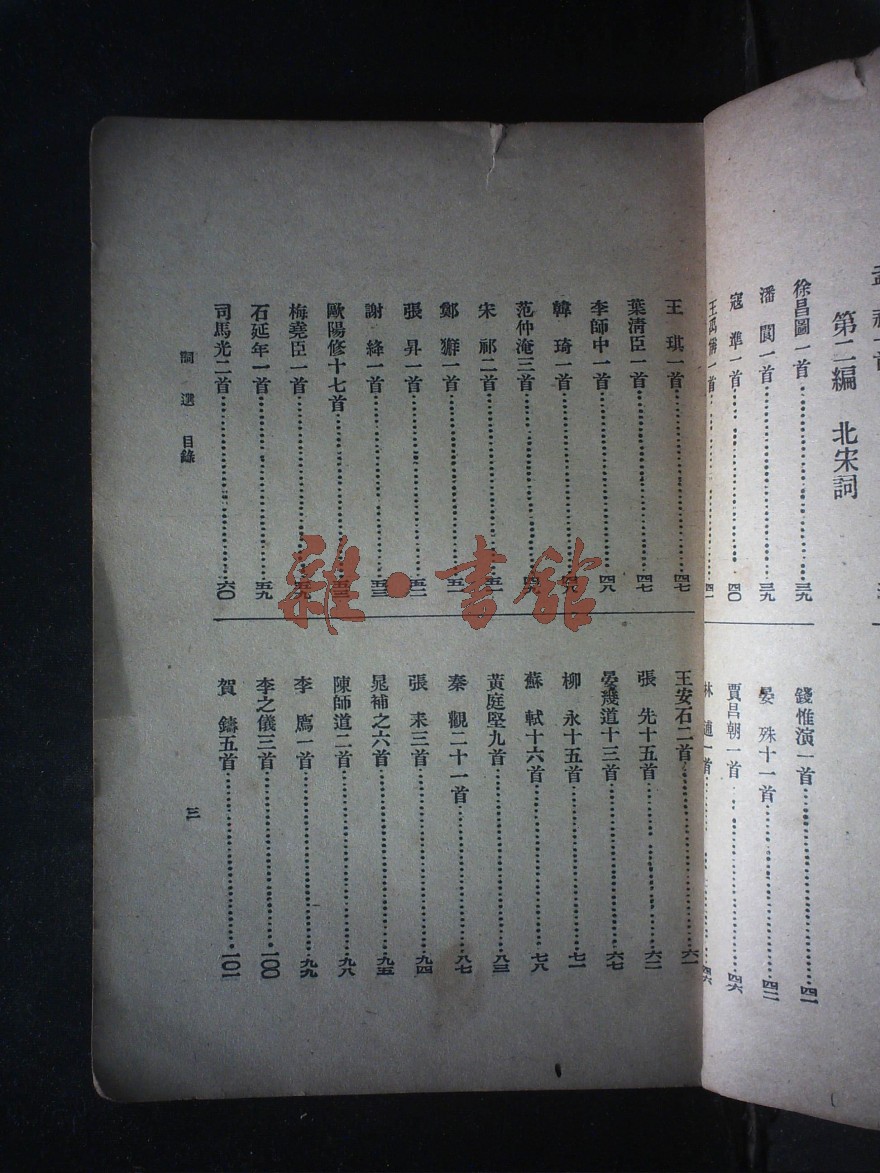 第二編 北宋詞
徐昌圖一首……三九
潘 閬一首……三九
寇 準一首……四〇
王禹偁一首……四一
錢惟演一首……四一
晏 殊十一首……四二
賈昌朝一首……四六
林 逋一首……四六
王 琪一首……四七
葉淸臣一首……四七
李師中一首……四八
韓 琦一首……
范仲淹三首……四九
宋 祁二首……
鄭 獬一首……五一
張 昇一首……五二
謝 絳一首……五三
歐陽修十七首……五三
梅堯臣一首……五九
石延年一首……五九
司馬光二首……六〇
王安石二首……六一
張 先十五首……六二
晏幾道十三首……六七
柳 永十五首……七一
蘇 軾十六首……七八
黃庭堅九首……八三
秦 觀二十一首……八七
張 耒三首……九四
晁補之六首……九五
陳師道二首……九八
李 廌一首……九九
李之儀三首……一〇〇
賀 鑄五首……一〇一
詞 選 目錄
三
雜·書館